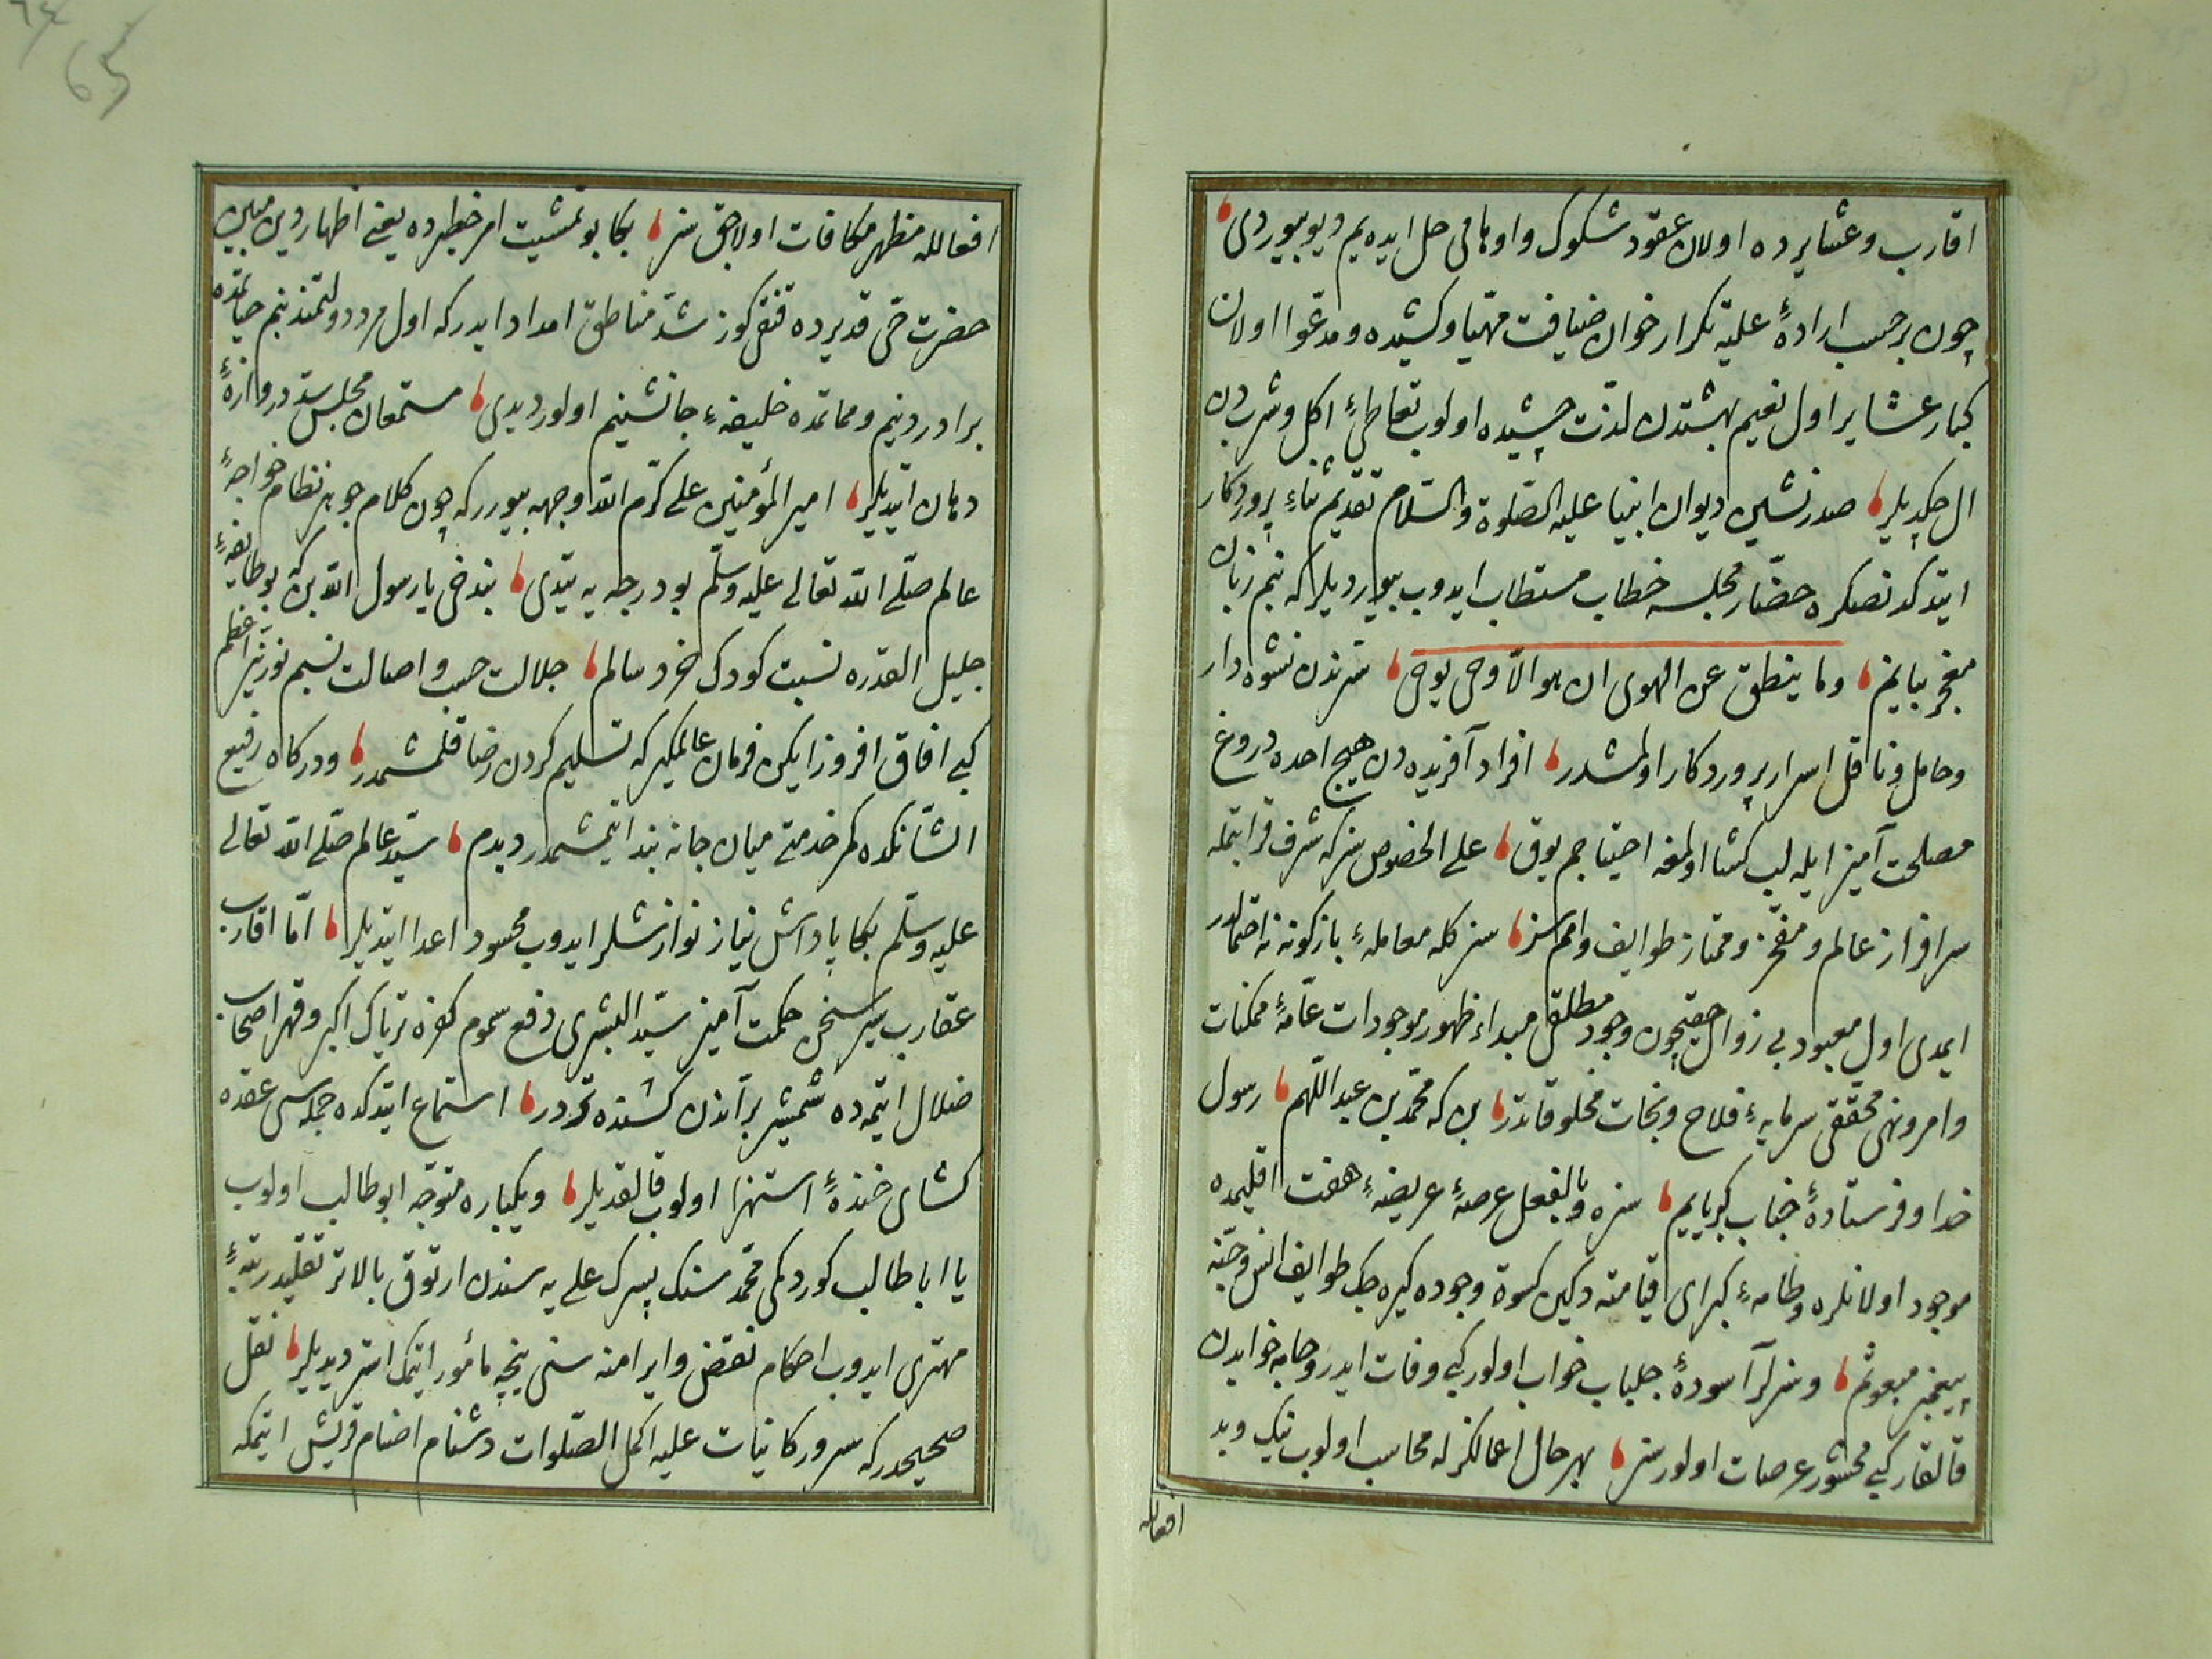 اقارب و عشایرده اولان عقود شكوك و اوهامی حل ایده یم دیو بیوردی
چون بر حسب ارادۀ علیه تكرار خوان ضیافت مهیا و كشیده و مدعوا اولان
كبار عشایر اول نعیم بهشتدن لذت چشیده اولوب تعاطئ اكل و شربدن
ال چكدیلر صدرنشین دیوان انبیا علیه الصلوة والسلام تقدیم ثناء پروردكار
ایتدكدنصكره حضار مجلسه خطاب مستطاب ایدوب بیوردیلر كه بنم زبان
معجز بیانم وما ینطق عن الهوی ان هو الا وحی یوحی سرندن نشوه دار
و حامل و ناقل اسرار پروردكار اولمشدر افراد آفریده دن هیچ احده دروغ
مصلحت آمیز ایله لب كشا اولمغه احتیاجم یوق علی الخصوص سز كه شرف قرابتمله
سرافراز عالم و مفخر و ممتاز طوایف و امم سز سزكله معامله ء بازكونه نه احتمالدر
ایمدی اول معبود بی زوال حقیچون وجود مطلق مبداء ظهور موجودات عامۀ ممكنات
و امر و نهی محققی سرمایه ء فلاح و نجات مخلوقاتدر بن كه محمد بن عبداللهم رسول
خدا و فرستادۀ جناب كبریایم سزه و بالفعل عرصۀ عریضه ء هفت اقلیمده
موجود اولانلره و طامه ء كبرای قیامته دكین كسوۀ وجوده كیره جك طوایف انس و جنه
پیغمبر مبعوثم و سزلر آسودۀ جلباب خواب اولور كبی وفات ایدر و جامه خوابدن
قالقار كبی محشور عرصات اولورسز بهر حال اعمالكزله محاسب اولوب نیك و بد
افعاله
65
افعالله مظهر مكافات اولاجقسز بكا بو تمشیت امر خطیرده یعنی اظهار دین مبین
حضرت حی قدیرده قنقیكوز شد مناطق امداد ایدر كه اول مرد دولتمند بنم حیاتمده
برادر دینم و مماتمده خلیفه ء جانشینم اولور دیدی مستمعان مجلس سد دروازۀ
دهان ایتدیلر امیر المؤمنین علی كرم الله وجهه بیورر كه چون كلام جوهر نظام خواجۀ
عالم صلی الله تعالی علیه وسلم بو درجه یه یتدی بندخی یا رسول الله بن كه بو طایفه ء
جلیل القدره نسبت كودك خرد سالم جلالت حسب و اصالت نسبم نور نیر اعظم
كبی افاق افروز ایكن فرمان عالمكیركه تسلیم كردن رضا قلمشمدر و دركاه رفیع
الشانكده كمر خدمتی میان جانه بند ایتمشمدر دیدم سید عالم صلی الله تعالی
علیه وسلم بكا پاداش نیاز نوازشلر ایدوب محسود اعدا ایتدیلر اما اقارب
عقارب سیر سخن حكمت آمیز سید البشری دفع سموم كفره تریاك اكبر و قهر اصحاب
ضلال ایتمده شمشیر براندن كشنده تردر استماع ایتدكده جمله سی عقده
كشای خندۀ استهزا اولوب قالقدیلر و یكباره متوجه ابو طالب اولوب
یا ابا طالب كوردكمی محمد سنك پسرك علی یه سندن ارتوق بالاتر تقلید رتبۀ
مهتری ایدوب احكام نقض و ابرامنه سنی نیجه مأمور ایتمك استر دیدیلر نقل
صحیحدر كه سرور كائنات علیه اكمل الصلوات دشنام اصنام قریش ایتمكه